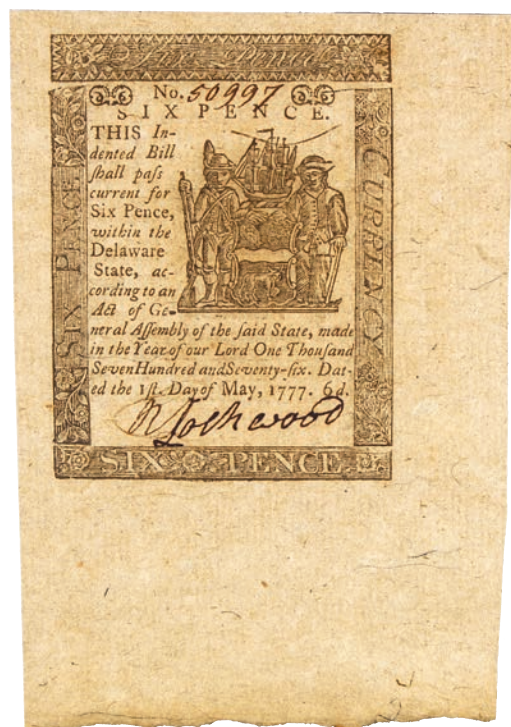 Pence
No. 50997
SIX PENCE.
THIS In-
dented Bill
ſhall paſs
current for
Six Pence,
within the
Delaware
State, ac-
cording to an
Act of Ge-
neral Aſſembly of the ſaid State, made
in the Year of our Lord One Thouſand
Seven Hundred and Seventy-ſix. Dat-
ed the 1ſt. Day of May, 1777. 6d.
Lockwood
SIX PENCE
SIX PENCE
CURRENCY